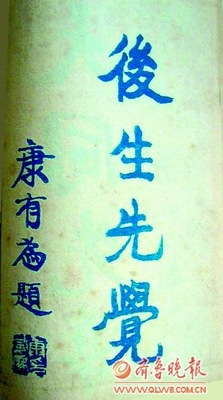 後生先覺
康有為題
齐鲁晚报
WWW.QLWB.COM.CN